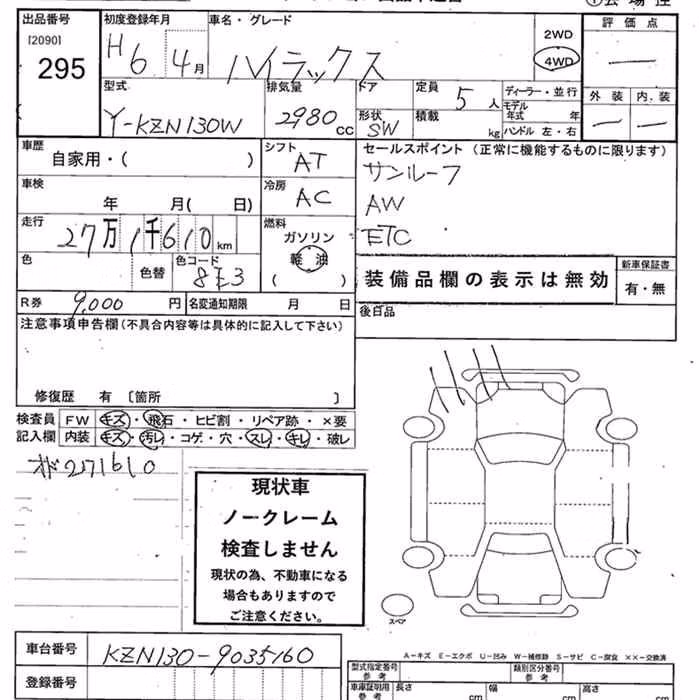 出品番号 初度登録年月 車名・グレード 2WD 評価点
[2090] 295 H6 4月 ハイラックス 4WD ―
型式 排気量 ドア 定員 ディーラー・並行 外装 内装
Y-KZN130W 2980 CC 形状 SW 積載 kg 5人 モデル年式 年 ハンドル 左・右 ― ―
車歴 シフト セールスポイント(正常に機能するものに限ります)
自家用・( ) AT サンルーフ
車検 年 月( 日) 冷房 AC AW
走行 27万1千610km 燃料 ガソリン ETC
色 色替 色コード 8E3 軽油 ( ) 装備品欄の表示は無効 新車保証書 有・無
R券 9,000 円 名変通知期限 月 日 後日品
注意事項申告欄(不具合内容等は具体的に記入して下さい)
修復歴 有 〔箇所 〕
検査員 FW キズ・飛石・ヒビ割・リペア跡・×要
記入欄 内装 キズ・汚レ・コゲ・穴・スレ・キレ・破レ
271610
現状車
ノークレーム
検査しません
現状の為、不動車になる
場合もありますので
ご注意ください。
スペア
A-キズ E-エクボ U-凹み W-補修跡 S-サビ C-腐食 ××-交換済
車台番号 KZN130-9035160
登録番号
型式指定番号 参考 類別区分番号 参考
車庫証明用 参考 長さ cm 幅 cm 高さ cm